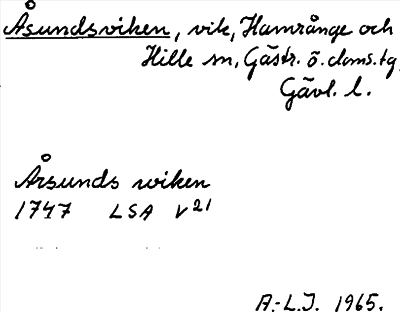 Åsundsviken, vik, Hamrånge och
Hille sn, Gästr. ö. doms.tg.
Gävl. l.
Årsunds wiken
1747 LSA V21
A.-L.J. 1965.